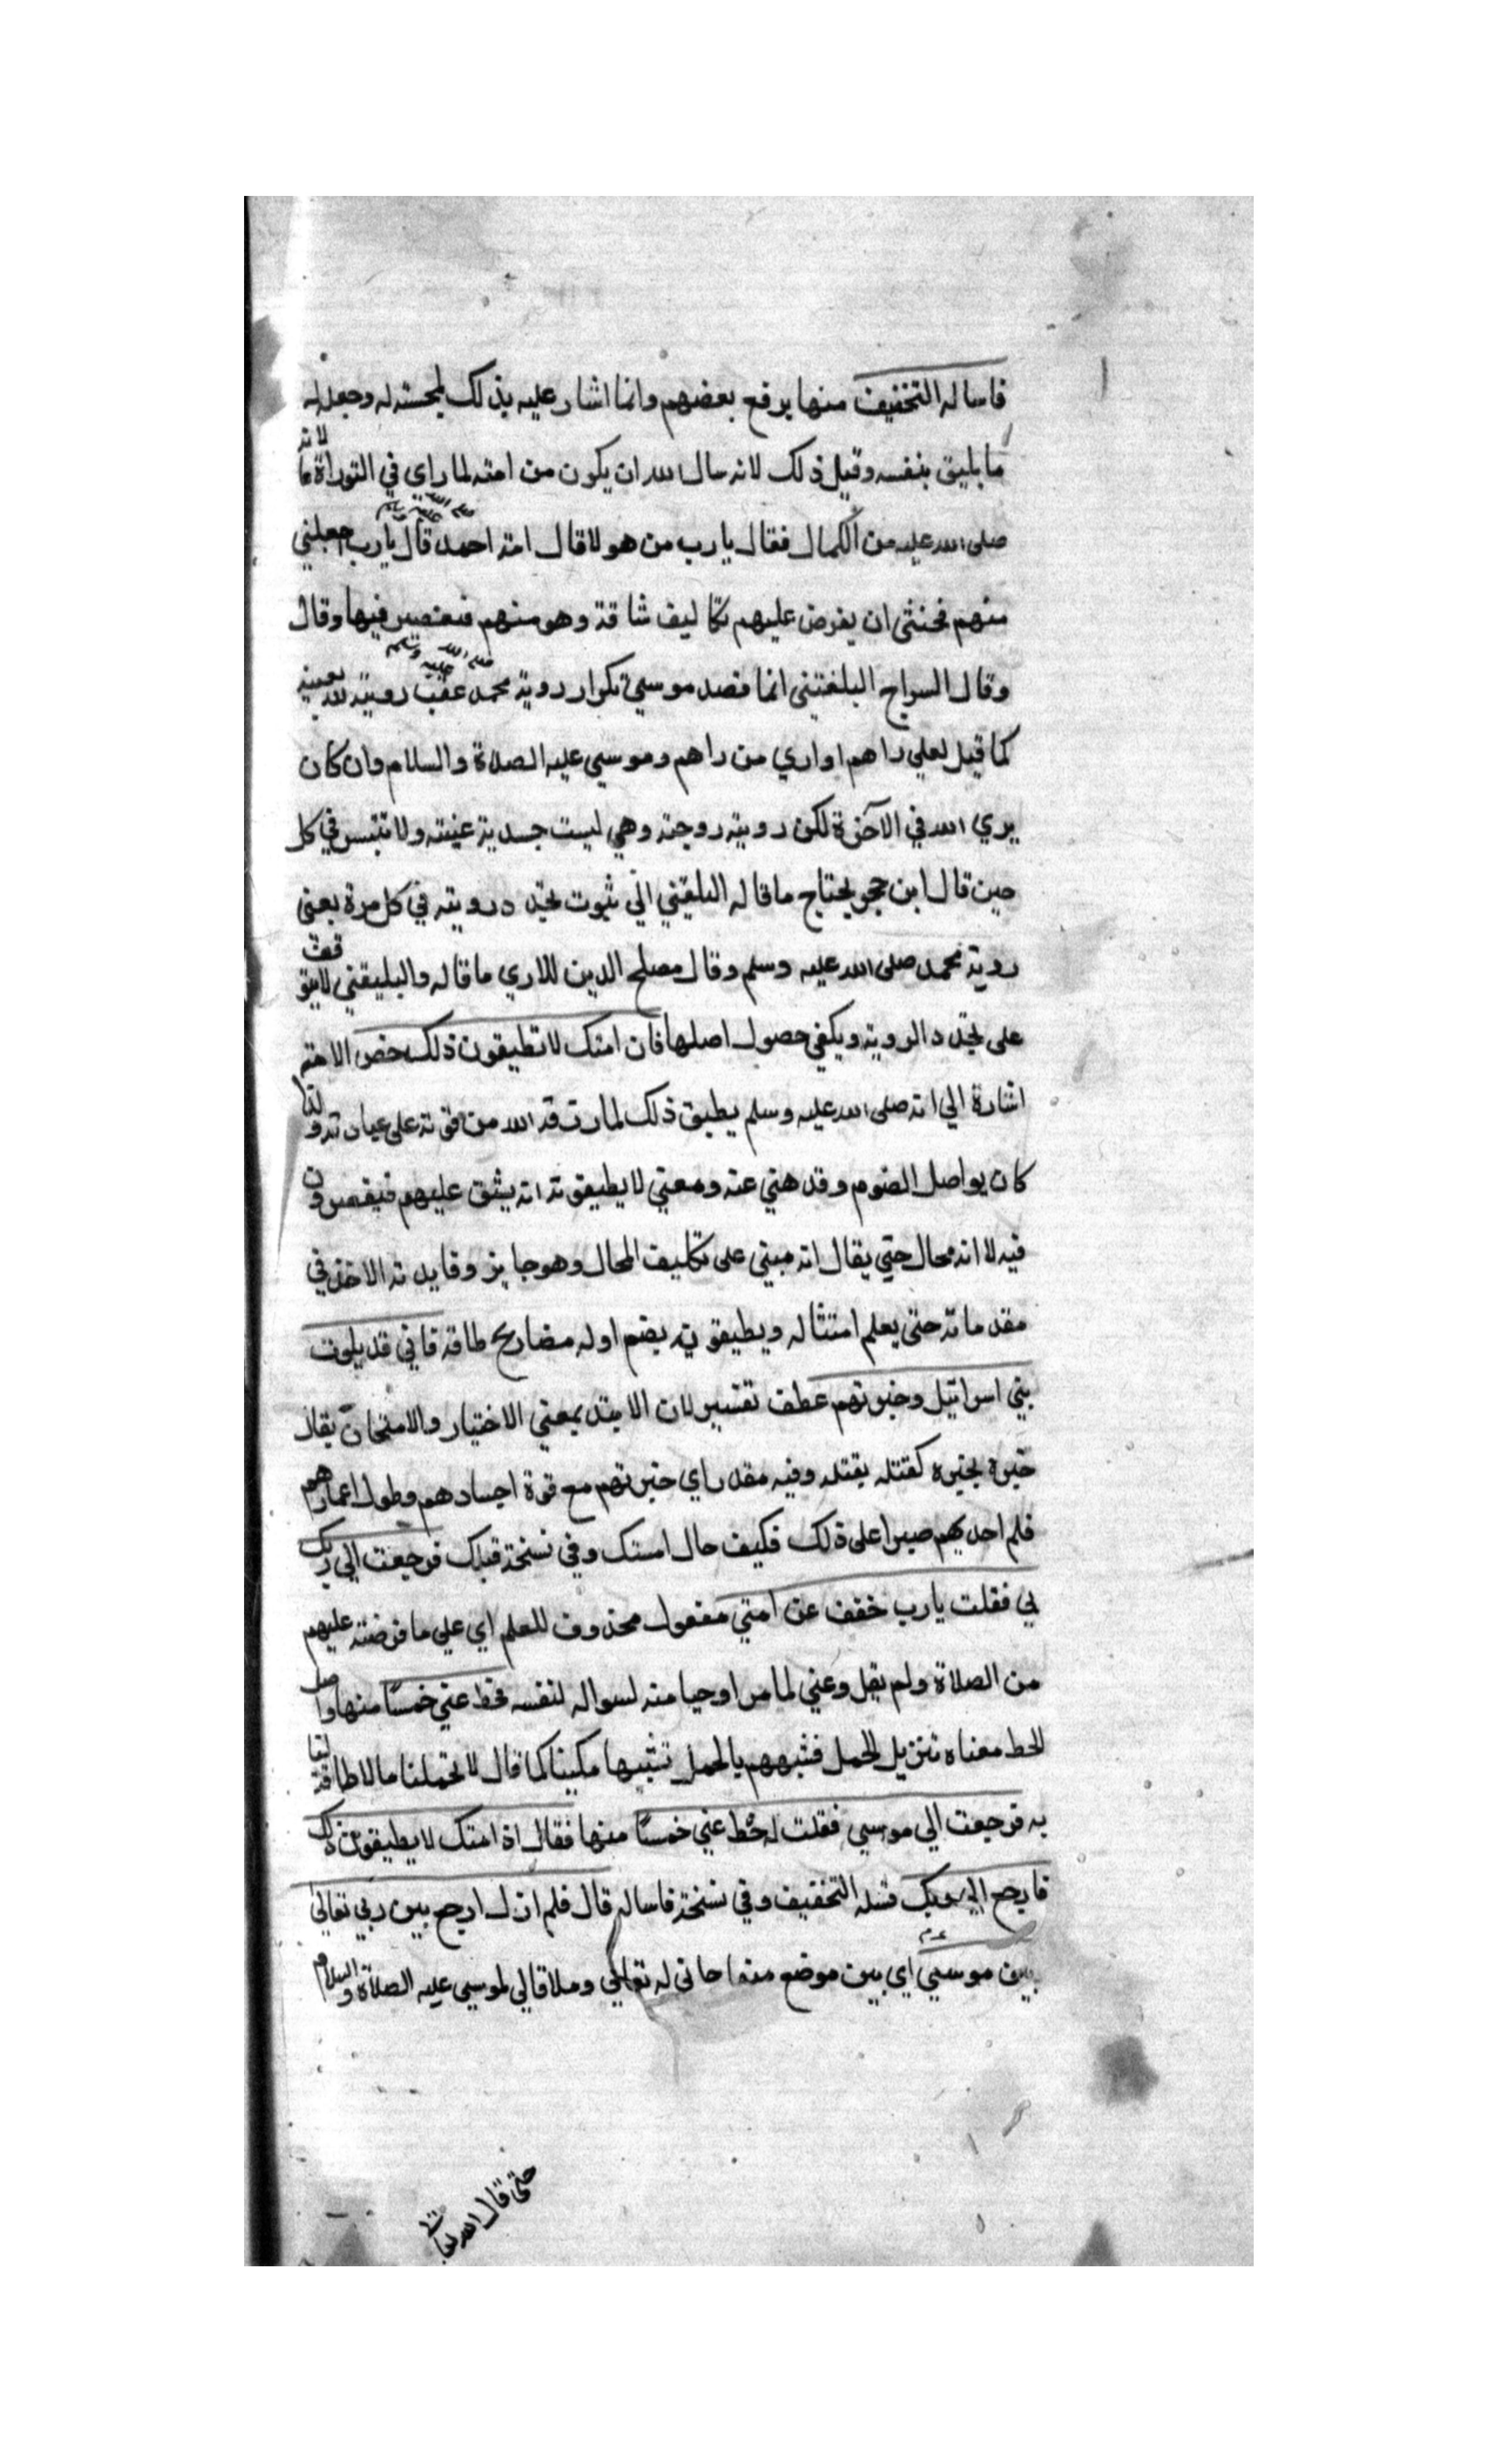 فاساله التخفيف منها برفع بعضهم وانما اشار عليه بذلك لمحبته له وجعل له
ما يليق بنفسه وقيل ذلك لانه سال الله ان يكون من امته لما راي في التوراة
صلى الله عليه من الكمال فقال يا رب من هولا قال امة احمد صلى الله عليه وسلم قال يا رب اجعلني
منهم فخشي ان يفرض عليهم تكاليف شاقة وهو منهم فيقصر فيها وقال
وقال السراج البلغتيني انما قصد موسي تكرار روية محمد صلى الله عليه وسلم عقب رويته لله بعينه
كما قيل لعلي راهم او اري من راهم وموسي عليه الصلاة والسلام وان كان
يري الله في الآخرة لكن رويته روحية وهي ليست جسدية عينية ولا تتيسر في كل
حين قال ابن حجر يحتاج ما قاله البلقيني الي ثبوت تجدد رويته في كل مرة يعني
روية محمد صلى الله عليه وسلم وقال مصلح الدين اللاري ما قاله والبليقني لا يتوقف
على تجدد الروية ويكفي حصول اصلها فان امتك لا تطيقون ذلك خص الامة
اشارة الي انه صلى الله عليه وسلم يطيق ذلك لما رزقه الله من قوته على عبادته ولذا
كان يواصل الصوم وقد نهي عنه ومعني لا يطيقونه انه يشق عليهم فيقصرون
فيه لا انه محال حتي يقال انه مبني على تكليف المحال وهو جايز وفايدته الاخذ في
مقدماته حتى يعلم امتثاله ويطيقون بضم اوله مضارع طاقة فاني قد بلوت
بني اسرائيل وخبرتهم عطف تفسير لان الابتلا بمعني الاختبار والامتحان يقال
خبره يخبره كقتله يقتله وفيه مقدر اي خبرتهم مع قوة اجسادهم وطول اعمارهم
فلم احد لهم صبرا على ذلك فكيف حال امتك وفي نسخة قبلك فرجعت الي ربك
بي فقلت يا رب خفف عن امتي مفعول محذوف للعلم اي على ما فرضته عليهم
من الصلاة ولم يقل وعني لما مر او حيا منه لسواله لنفسه فحط عني خمسا منها واصل
الحط معناه تنزيل الحمل فشبههم بالحمل تشبيها مكينا كما قال لا تحملنا ما لا طاقة لنا
به فرجعت الي موسي فقلت له حط عني خمسا منها فقال اذ امتك لا يطيقون ذلك
فارجع الي ربك فسله التخفيف وفي نسخة فاساله قال فلم ازل ارجع بين ربي تعالى
بين موسي ع م اي بين موضع مناجاتي له تعالي وملاقاتي لموسي عليه الصلاة والسلام
حتى قال الله تعالى